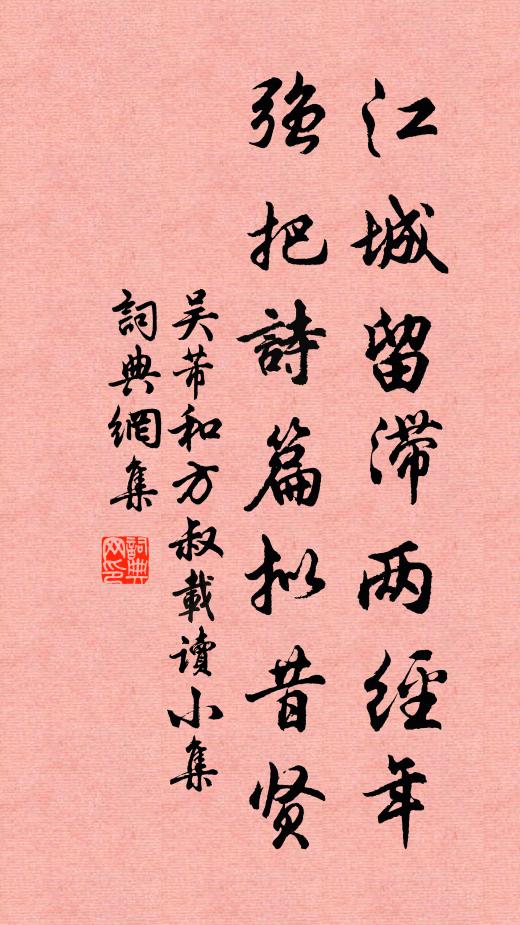 江城留滞两經年
强把詩篇拟昔贤
吴芾和方叔載讀小集
詞典網集
詞典网印